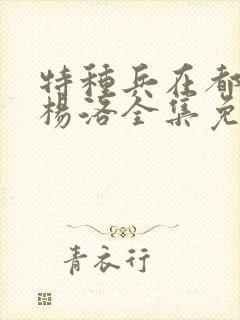 特種兵在都
楊洛全集免
青衣行